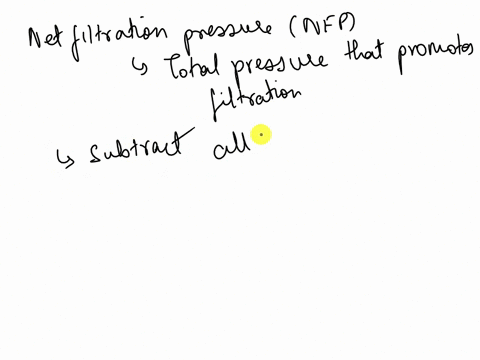 Net filtration pressure (NFP)
↳ Total pressure that promotes
filtration
↳ Subtract all